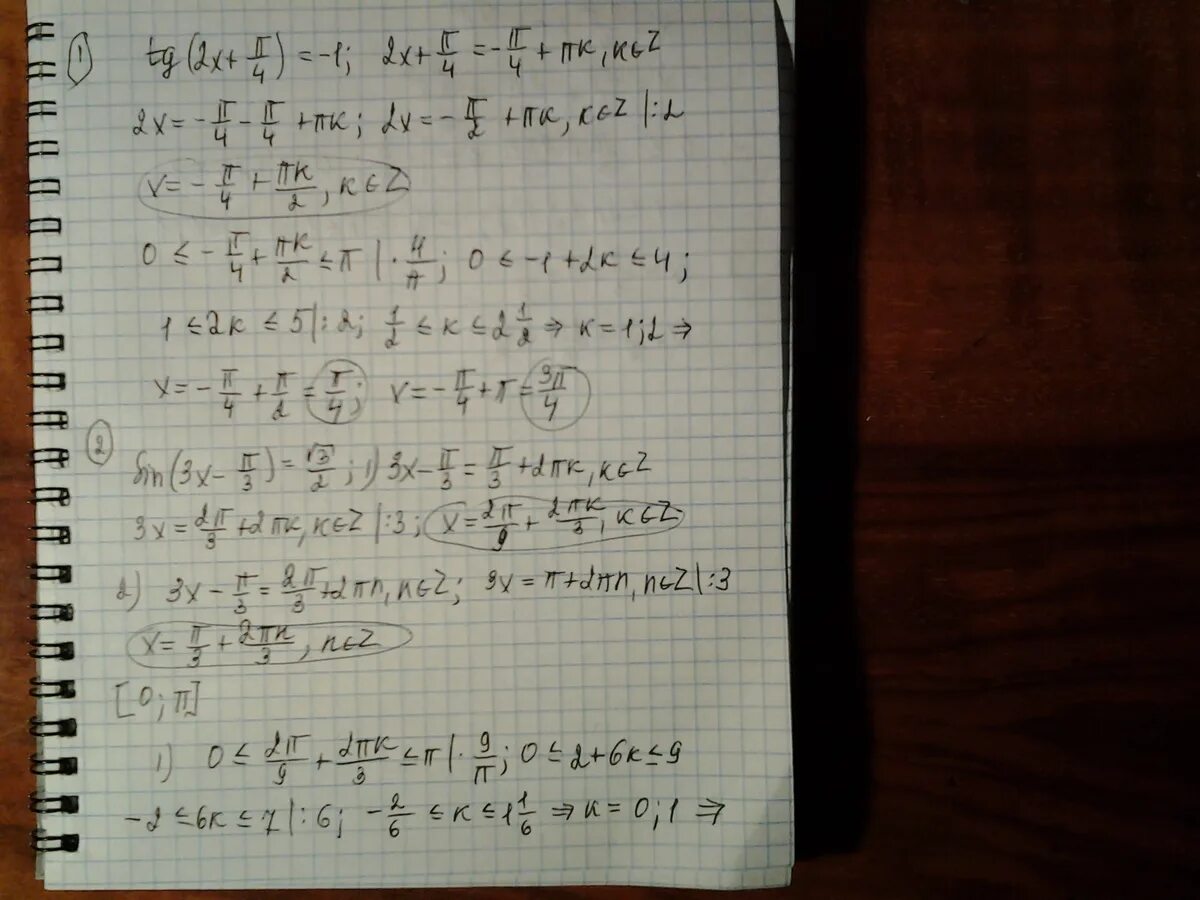 ① tg(2x+π/4)=-1; 2x+π/4=-π/4+πк, к∈Z
2x=-π/4-π/4+πк; 2x=-π/2+πк, к∈Z |:2
x=-π/4+πк/2, к∈Z
0≤-π/4+πк/2≤π |·4/π; 0≤-1+2к≤4;
1≤2к≤5|:2; 1/2≤к≤2 1/2⇒к=1;2⇒
x=-π/4+π/2=π/4; x=-π/4+π=3π/4
② Sin(3x-π/3)=√3/2; 1) 3x-π/3=π/3+2πк, к∈Z
3x=2π/3+2πк, к∈Z |:3; x=2π/9+2πк/3, к∈Z
2) 3x-π/3=2π/3+2πn, n∈Z; 3x=π+2πn, n∈Z|:3
x=π/3+2πn/3, n∈Z
[0;π]
1) 0≤2π/9+2πк/3≤π|·9/π; 0≤2+6к≤9
-2≤6к≤7|:6; -2/6≤к≤1 1/6⇒к=0;1⇒